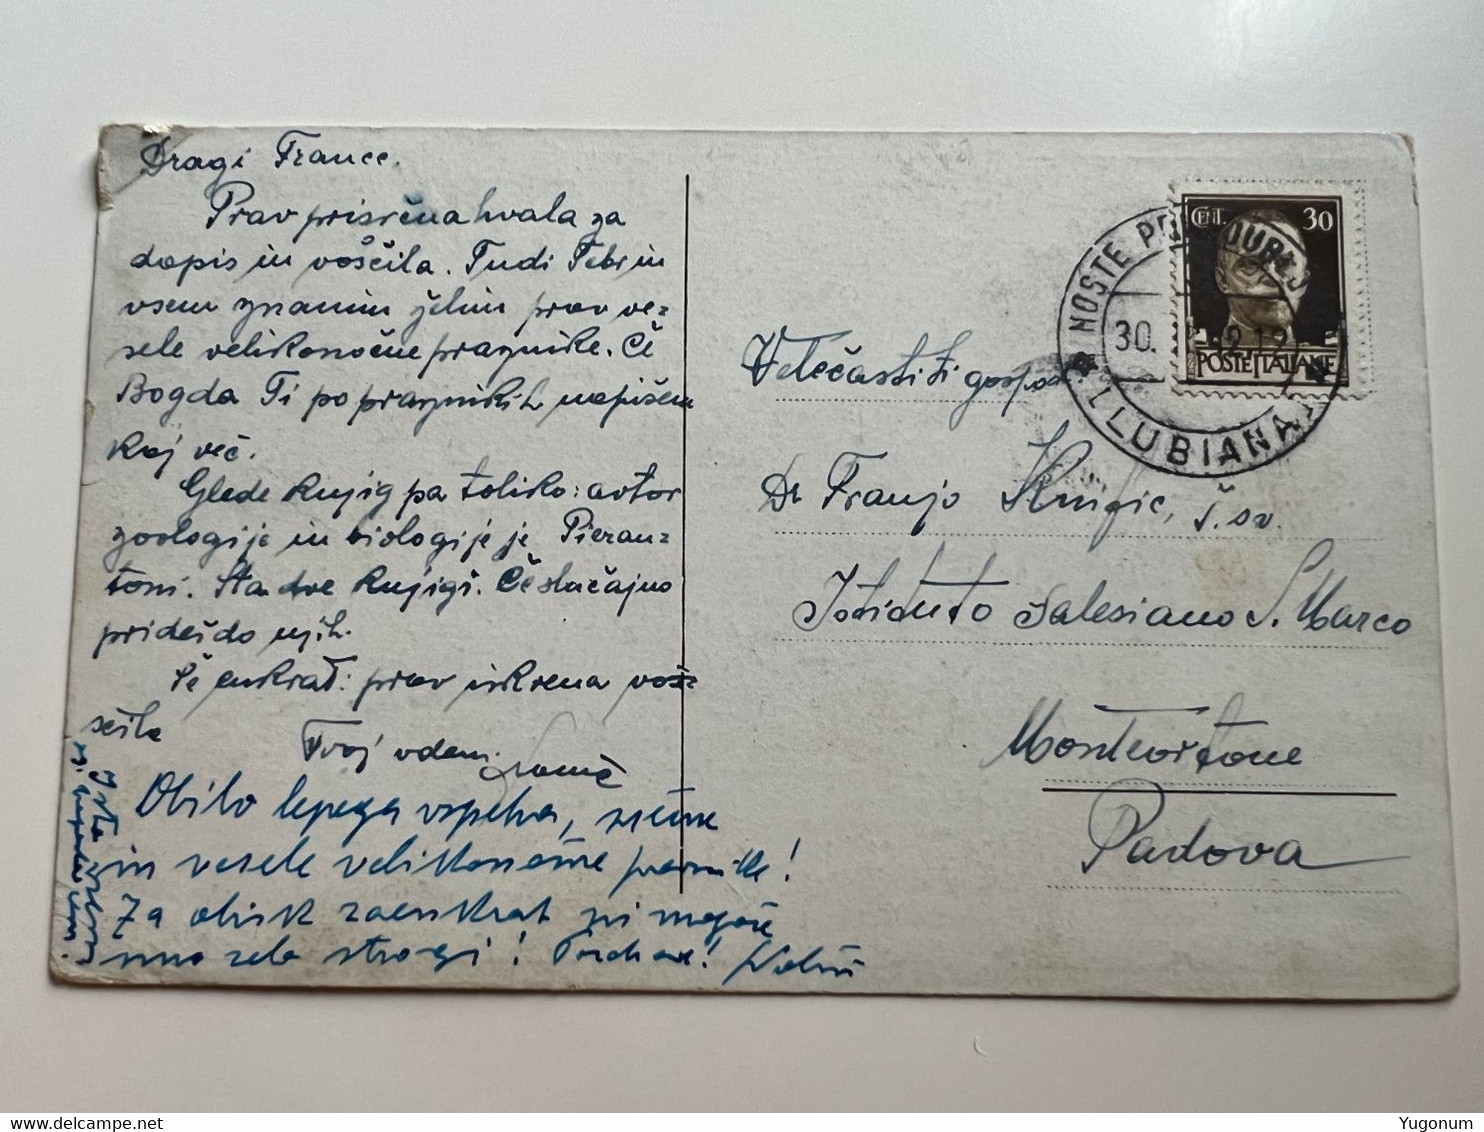 Dragi France.
Prav prisrčna hvala za
dopis in voščila. Tudi Tebi in
vsem znanim želim prav ve=
sele velikonočne praznike. Če
Bogda Ti po praznikih napišem
kaj več.
Glede knjig pa toliko: avtor
zoologije in biologije je Pieran=
toni. Sta dve knjigi. Če slučajno
prideš do njih.
Še enkrat: prav iskrena voš=
čila
Tvoj vdani
Obilo lepega vspeha, srečne
in vesele velikonočne praznike!
Za obisk zaenkrat ni mogoče
smo zelo strogi! Pozdrave!
Velečastiti gospod
Dr Franjo Knific, š. sv.
Istituto Salesiano S. Marco
Monteortone
Padova
CENT. 30
POSTE ITALIANE
POSTE
30.
LUBIANA
Yugonum
delcampe.net